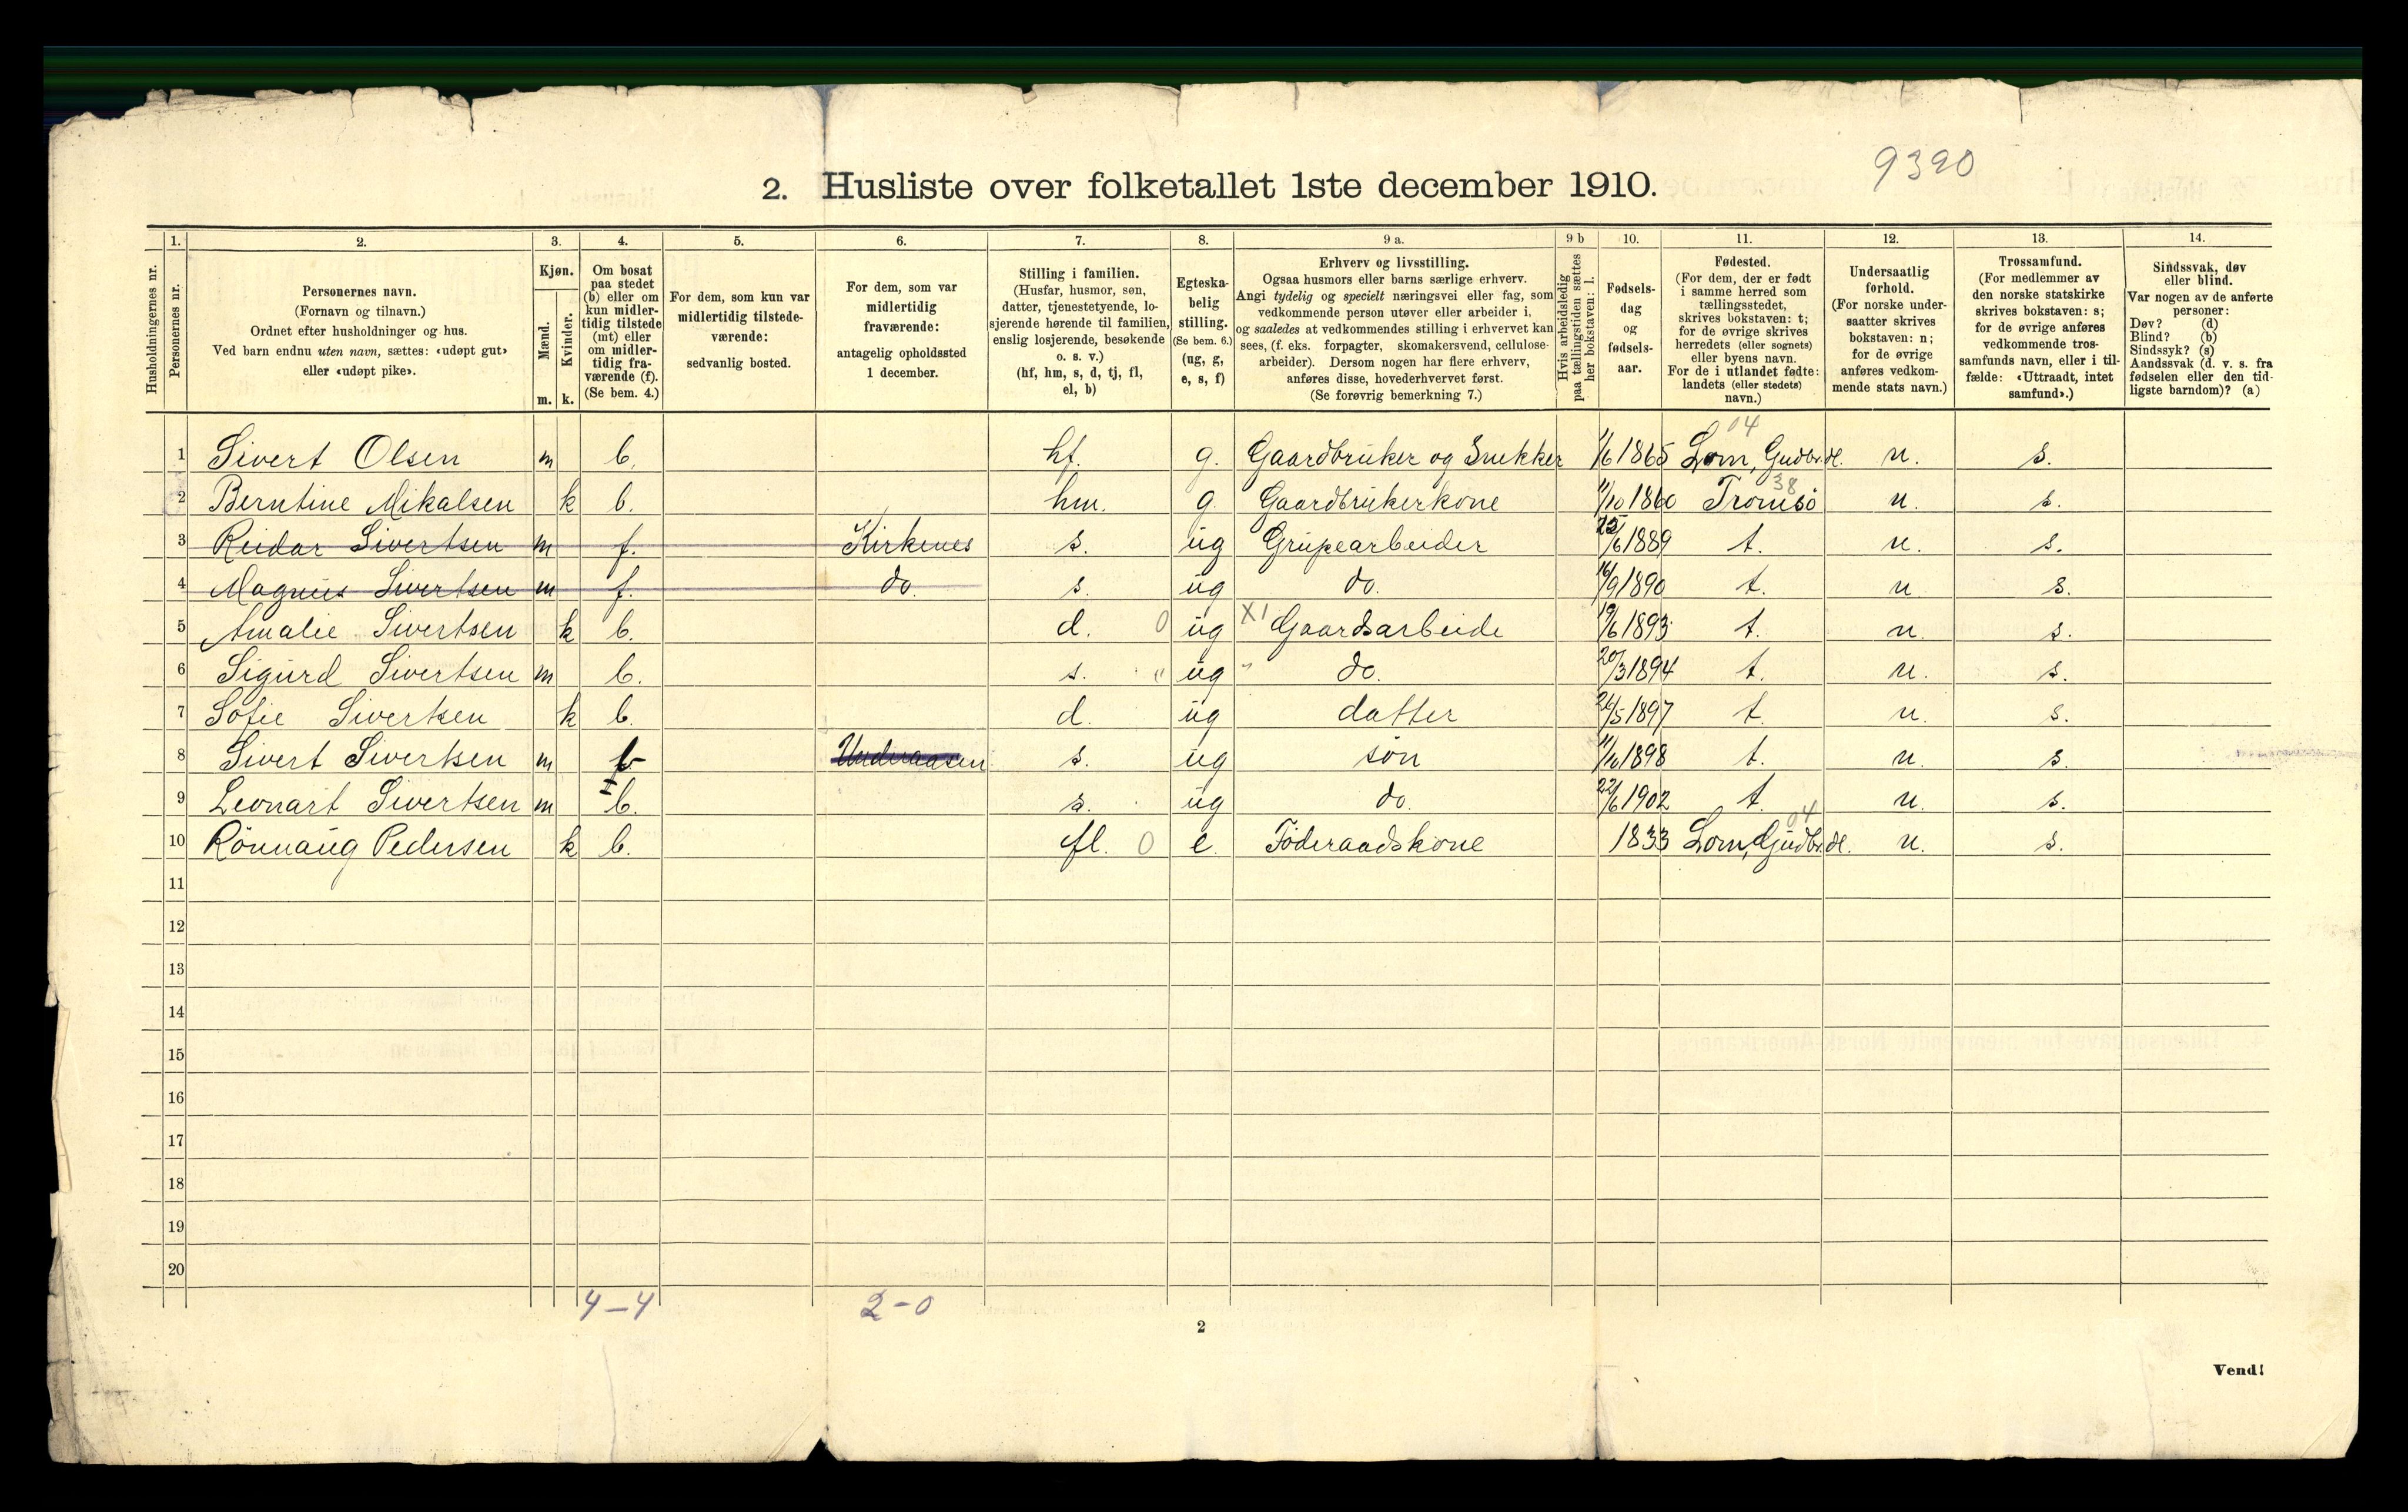 9390
2. Husliste over folketallet 1ste december 1910.
Husholdningernes nr.
1. Personernes nr.
2. Personernes navn.
(Fornavn og tilnavn.)
Ordnet efter husholdninger og hus.
Ved barn endnu uten navn, sættes: «udøpt gut»
eller «udøpt pike».
3. Kjøn.
Mænd. m.
Kvinder. k.
4. Om bosat
paa stedet
(b) eller om
kun midler-
tidig tilstede
(mt) eller
om midler-
tidig fra-
værende (f).
(Se bem. 4.)
5. For dem, som kun var
midlertidig tilstede-
værende:
sedvanlig bosted.
6. For dem, som var
midlertidig
fraværende:
antagelig opholdssted
1 december.
7. Stilling i familien.
(Husfar, husmor, søn,
datter, tjenestetyende, lo-
sjerende hørende til familien,
enslig losjerende, besøkende
o. s. v.)
(hf, hm, s, d, tj, fl,
el, b)
8. Egteska-
belig
stilling.
(Se bem. 6.)
(ug, g,
e, s, f)
9 a. Erhverv og livsstilling.
Ogsaa husmors eller barns særlige erhverv.
Angi tydelig og specielt næringsvei eller fag, som
vedkommende person utøver eller arbeider i,
og saaledes at vedkommendes stilling i erhvervet kan
sees, (f. eks. forpagter, skomakersvend, cellulose-
arbeider). Dersom nogen har flere erhverv,
anføres disse, hovederhvervet først.
(Se forøvrig bemerkning 7.)
9 b Hvis arbeidsledig
paa tællingstiden sættes
her bokstaven: l.
10. Fødsels-
dag
og
fødsels-
aar.
11. Fødested.
(For dem, der er født
i samme herred som
tællingsstedet,
skrives bokstaven: t;
for de øvrige skrives
herredets (eller sognets)
eller byens navn.
For de i utlandet fødte:
landets (eller stedets)
navn.)
12. Undersaatlig
forhold.
(For norske under-
saatter skrives
bokstaven: n;
for de øvrige
anføres vedkom-
mende stats navn.)
13. Trossamfund.
(For medlemmer av
den norske statskirke
skrives bokstaven: s;
for de øvrige anføres
vedkommende tros-
samfunds navn, eller i til-
fælde: «Uttraadt, intet
samfund».)
14. Sindssvak, døv
eller blind.
Var nogen av de anførte
personer:
Døv? (d)
Blind? (b)
Sindssyk? (s)
Aandssvak (d. v. s. fra
fødselen eller den tid-
ligste barndom)? (a)
04
1 Sivert Olsen m b. hf. g. Gaardbruker og Snekker 1/6 1865 Lom, Gudbr.dl. n. s.
38
2 Berntine Mikalsen k b. hm. g. Gaardbrukerkone 11/10 1860 Tromsö n. s.
3 Reidar Sivertsen m f. Kirkenes s. ug Grupearbeider 25/6 1889 t. n. s.
4 Magnus Sivertsen m f. do. s. ug do. 16/9 1890 t. n. s.
5 Amalie Sivertsen k b. d. 0 ug X1 Gaardsarbeide 19/6 1893 t. n. s.
6 Sigurd Sivertsen m b. s. " ug " do. 20/3 1894 t. n. s.
7 Sofie Sivertsen k b. d. ug datter 26/5 1897 t. n. s.
8 Sivert Sivertsen m s. ug sön 11/10 1898 t. n. s.
9 Leonart Sivertsen m b. s. ug do. 22/6 1902 t. n. s.
04
10 Rönnaug Pedersen k b. fl. 0 e. Föderaadskone 1833 Lom, Gudbr.dl. n. s.
11
12
13
14
15
16
17
18
19
20
4-4 2-0
2
Vend!